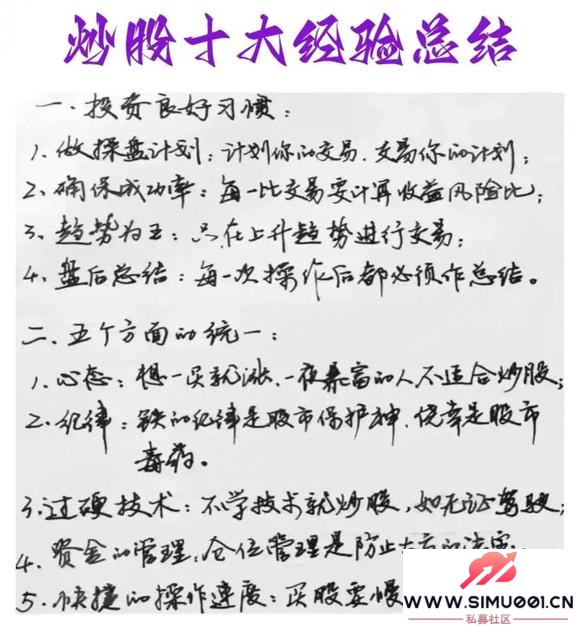 炒股十大经验总结
一、投资良好习惯：
1、做操盘计划：计划你的交易、交易你的计划；
2、确保成功率：每一比交易要计算收益风险比；
3、趋势为王：只在上升趋势进行交易；
4、盘后总结：每一次操作后都必须作总结。
二、五个方面的统一：
1、心态：想一买就涨、一夜暴富的人不适合炒股；
2、纪律：铁的纪律是股市保护神，侥幸是股市
毒药。
3、过硬技术：不学技术就炒股，如无证驾驶；
4、资金的管理：仓位管理是防止
5、快捷的操作速度：买股要慢
WWW.SIMU001.CN
私募社区